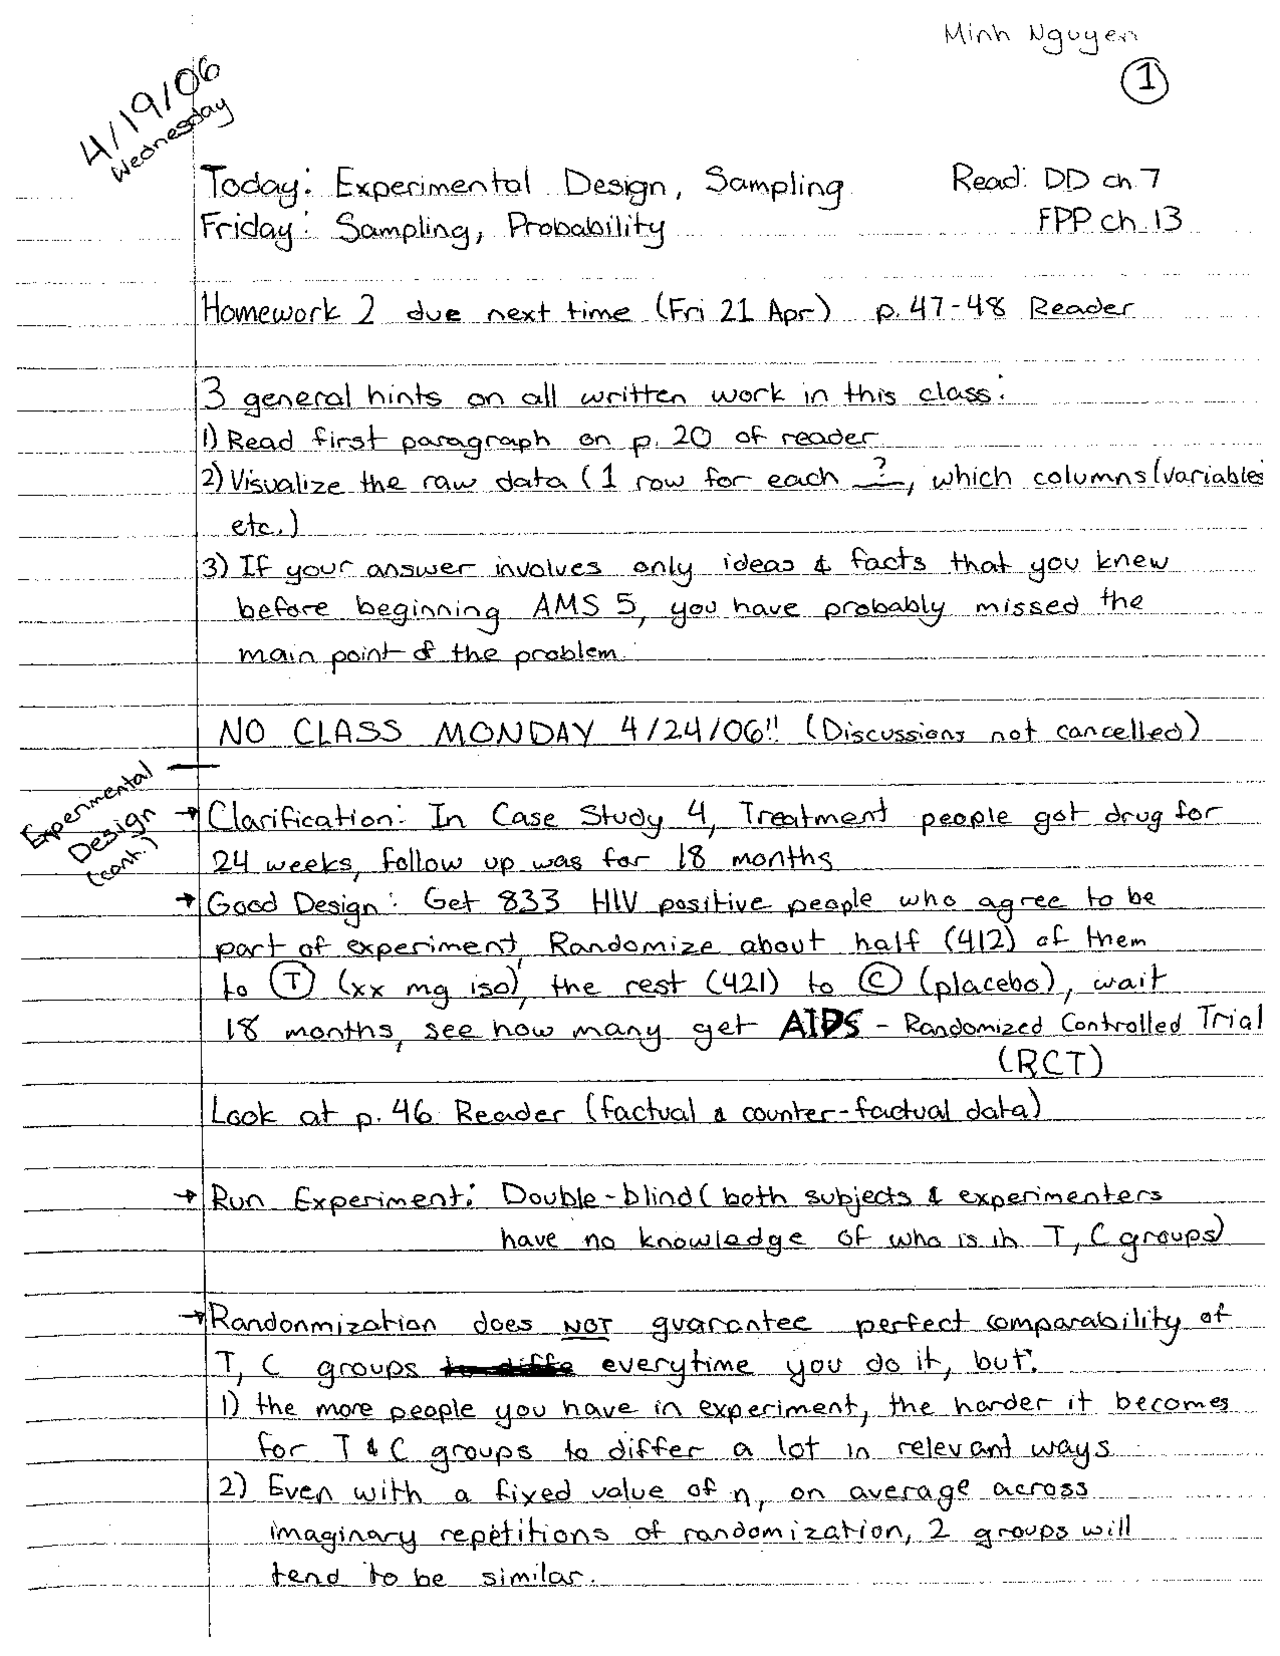 Minh Nguyen
1
4/19/06
Wednesday
Today: Experimental Design, Sampling Read: DD ch. 7
Friday: Sampling, Probability FPP ch. 13
Homework 2 due next time (Fri 21 Apr) p. 47-48 Reader
3 general hints on all written work in this class:
1) Read first paragraph on p. 20 of reader
2) Visualize the raw data (1 row for each ?, which columns (variables)
etc.)
3) If your answer involves only ideas & facts that you knew
before beginning AMS 5, you have probably missed the
main point of the problem.
NO CLASS MONDAY 4/24/06!! (Discussions not cancelled)
Experimental
Design
(cont.)
→ Clarification: In Case Study 4, Treatment people got drug for
24 weeks, follow up was for 18 months
→ Good Design: Get 833 HIV positive people who agree to be
part of experiment, Randomize about half (412) of them
to T (xx mg iso), the rest (421) to C (placebo), wait
18 months, see how many get AIDS - Randomized Controlled Trial
(RCT)
Look at p. 46 Reader (factual & counter-factual data)
→ Run Experiment: Double-blind (both subjects & experimenters
have no knowledge of who is in T, C groups)
→ Randonmization does NOT guarantee perfect comparability of
T, C groups everytime you do it, but:
1) the more people you have in experiment, the harder it becomes
for T & C groups to differ a lot in relevant ways
2) Even with a fixed value of n, on average across
imaginary repetitions of randomization, 2 groups will
tend to be similar.